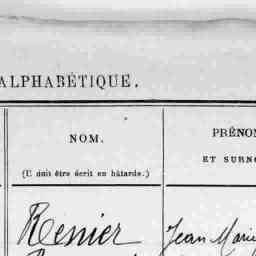 ALPHABÉTIQUE.
NOM.
(Il doit être écrit en bâtarde.)
PRÉNO
ET SURNO
Resnier
Jean Marie